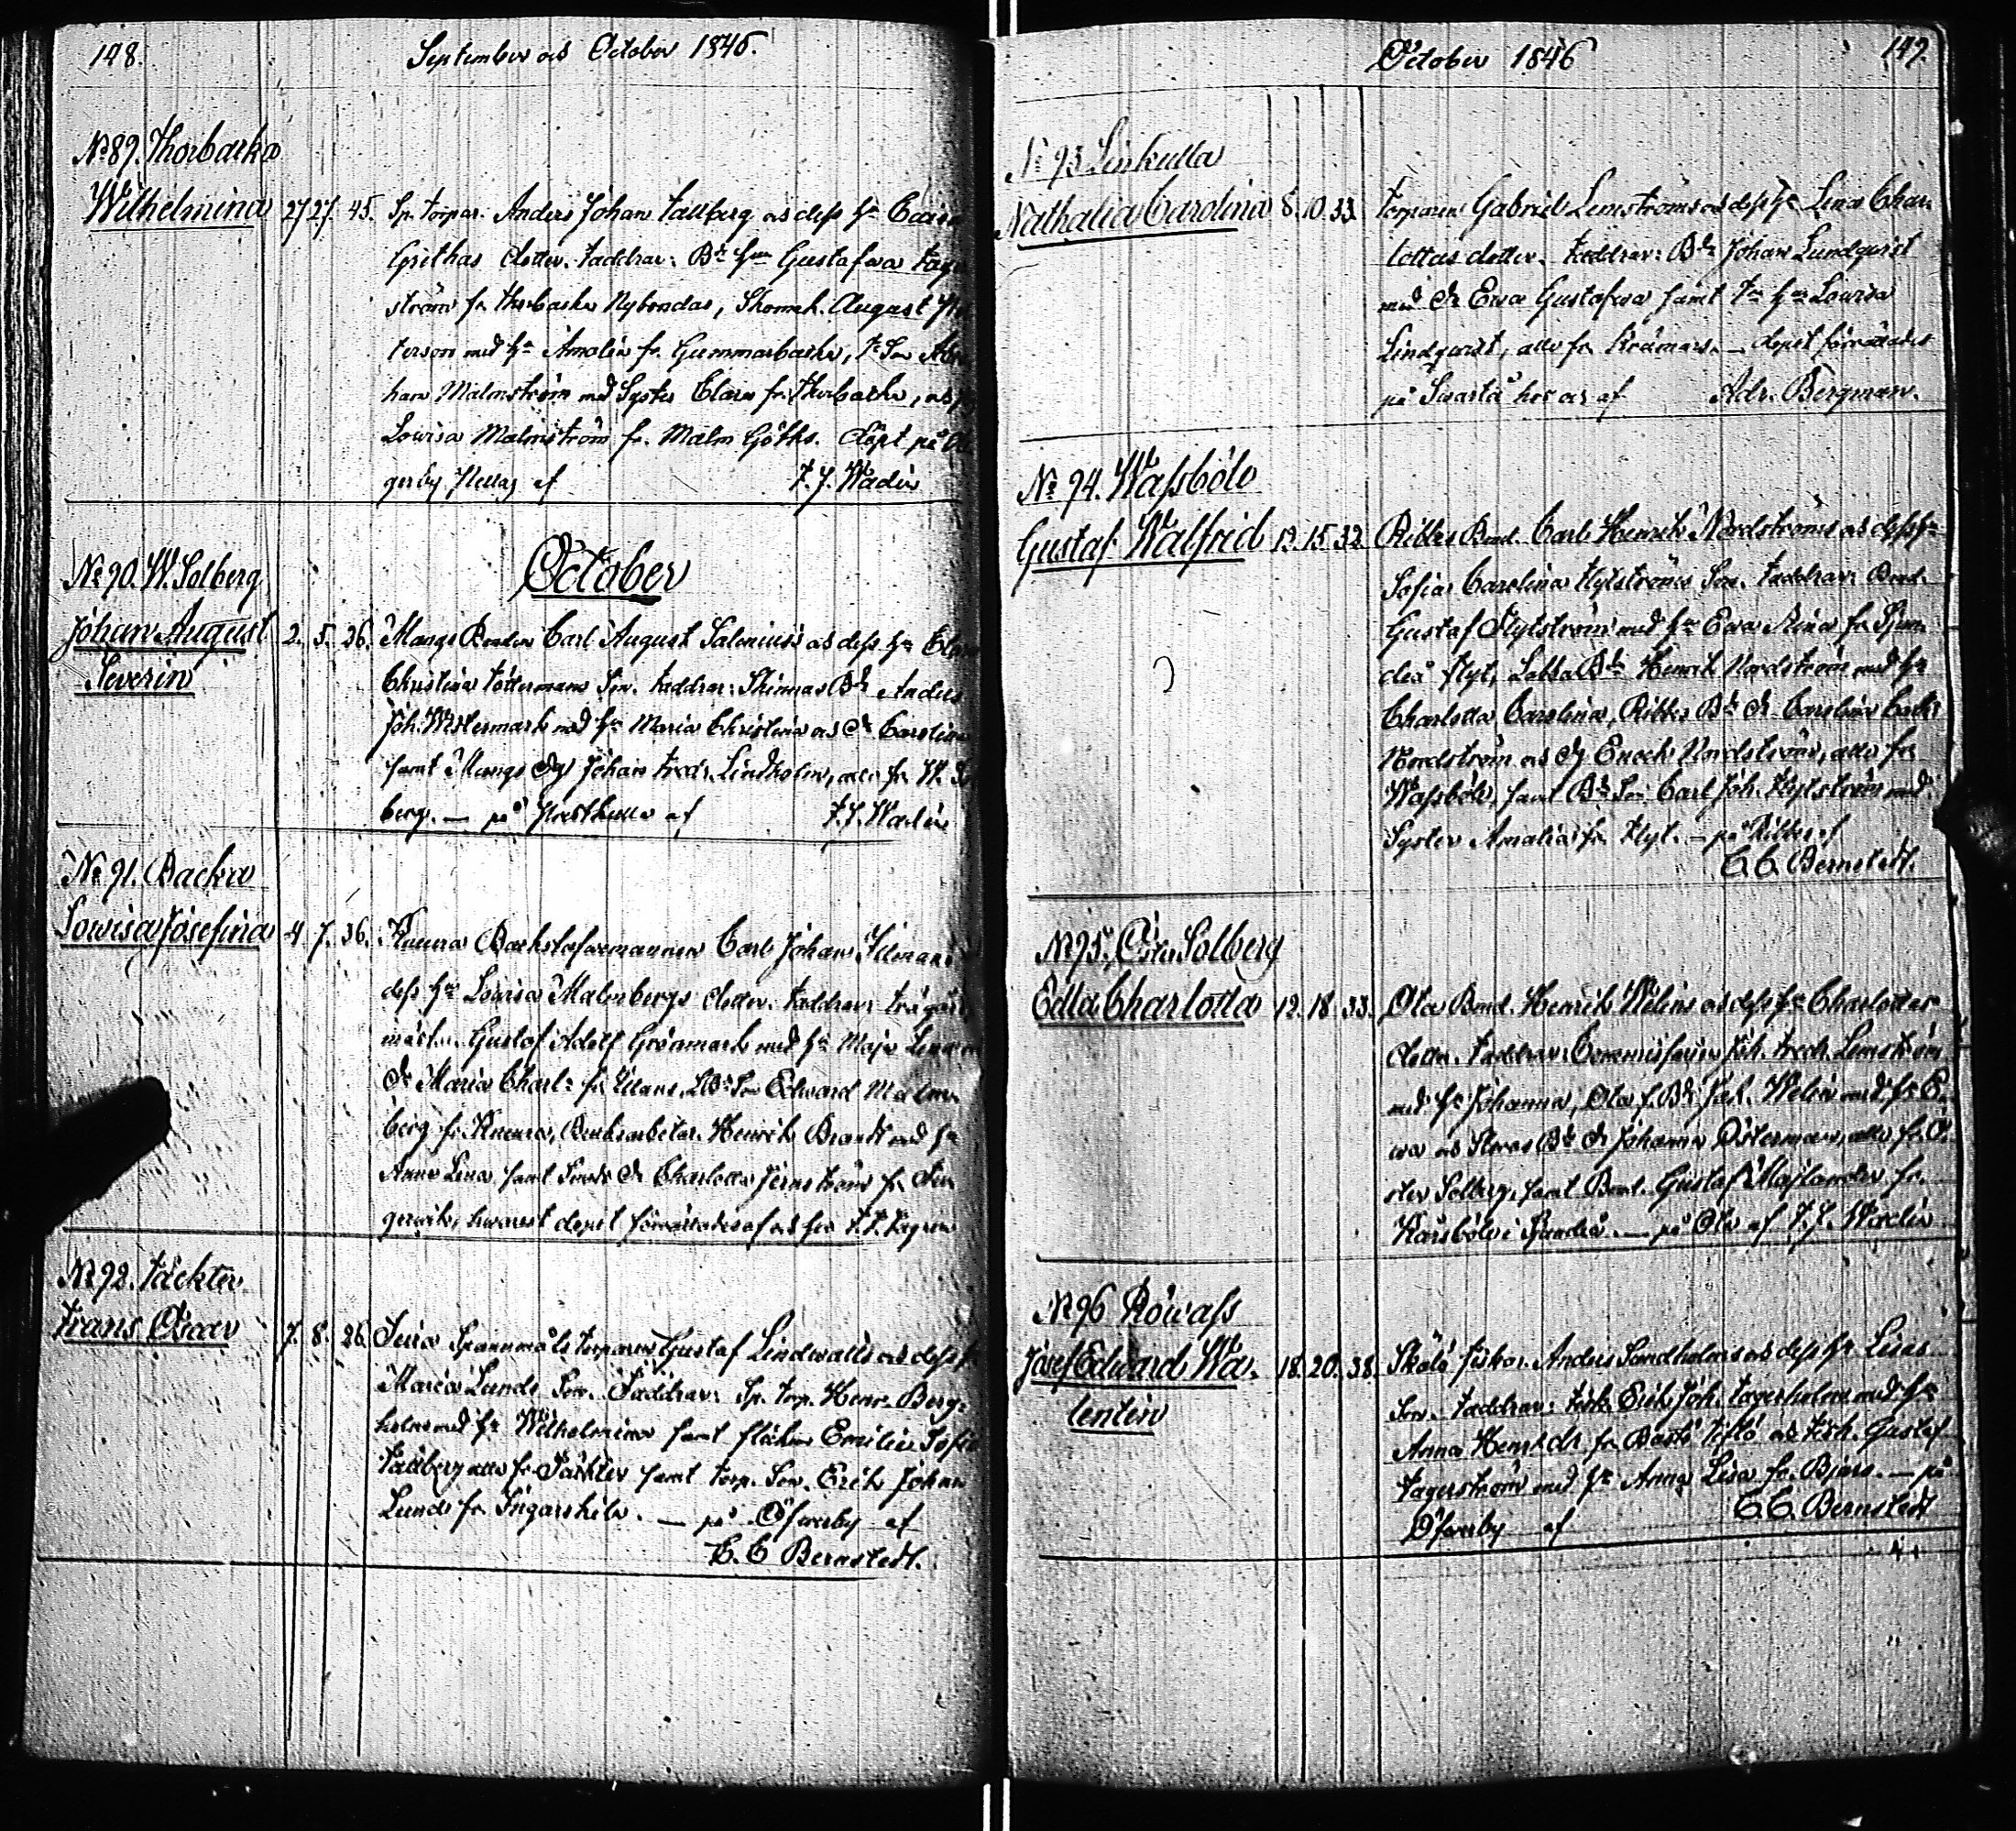 148.
September och October 1846.
No 89. Thorbacka
Wilhelmina 27 27. 45. Sp. torpar. Anders Johan Tallberg och dess Hu Caisa
Grethas dotter. Faddrar: Bde Hu Gustafwa
ström fr. Thorbacka Nybondas, Skomak. August
terson med Hu Amalia fr. Gummarbacka,
han Malmström med Syster Clara fr. Thorbacka, och
Lowisa Malmström fr. Malm Göths. döpt på
gerby Nellas af F. J. Wadén
October
No 90. W. Solberg
Johan August 2. 5. 36. Mangs Bonden Carl August Salenius's och dess Hu
Severin Christina Töttermans Son. Faddrar: Skinnas Bd Anders
Joh. Westermark med Hu Maria Christina och Dr Carolina
samt Mangs Dg Johan Fredr. Lindholm, alla fr. W. Sol
berg. — på af F. J. Wadén
No 91. Backa
Lowisa Josefina 4. 7. 36. Knuera Backstufwemannen Carl Johan
dess Hu Lowisa Malmbergs dotter. Faddrar:
Gustaf Adolf Grönmark med Hu Maja Lena
Dr Maria Charl: fr. Son Edward Malm-
berg fr. Knuera, Bruksarbetar. Henrik Brandt med Hu
Anna Lena samt Dr Charlotta Jernström fr. Fin
gerwik, hwarest dopet förrättades af
No 92. Täckter
Frans Oscar 7. 8. 26. Spannmåls torparen Gustaf Lindwalls och dess
Maria Lunds Son. Faddrar: Sp. torp. Henr. Berg-
holm med Hu Wilhelmina samt flickan Emilia Sofia
Tallberg alla fr. Täckter samt torp. Son. Erik Johan
Lund fr. Ingarskila. — på Öfwerby af
C. C Bernstedt.
October 1846
149.
No 93. Linkulla
Nathalia Carolina 8. 10. 33. torparen Gabriel Lemströms och dess Hu Lena Char-
lottas dotter. Faddrar: Bd Johan Lundqvist
med Dr Ewa Gustafwa samt Hu Lowisa
Lindqvist, alla fr. Krämars. — dopet förrättades
på Swartå hos oss af Adr. Bergman.
No 94. Wassböle
Gustaf Walfrid 13. 15. 32. Ribbs Bond. Carl Henrik Nordströms och dess Hu
Sofia Carolina Flytströms Son. Faddrar: Bond.
Gustaf Flytström med Hu Ewa Stina fr. Sjun-
deå Flyt, Labba Bd Henrik Nordström med Hu
Charlotta Carolina, Ribbs Bd Dr Carolina
Nordström och Dg Enoch Nordström, alla fr.
Wassböle, samt Bd Son Carl Joh. Flytström med
Syster Amalia fr. Flyt. — på Ribbs af
C. C. Bernstedt.
No 95. Öster Solberg
Edla Charlotta 12. 18. 33. Ola Bond. Henrik Welins och dess Hu Charlottas
dotter. Faddrar: Joh. Fredr. Lemström
med Hu Johanna, Ola f. Bd Welin med Hu E-
wa och Bd Dr Johanna Österman, alla fr. Ö-
ster Solberg, samt Bond. Gustaf fr.
Kårsböle i Sjundeå. — på Ola af F. J. Wadén
No 96 Röwass
Josef Edward Wa- 18. 20. 38. Skälö fiskar. Anders Sandholms och dess Hu Lisas
lentin Son. Faddrar: Fisk. Erik Joh. Fagerholm med Hu
Anna Henr. Dr fr. Bastö och Fisk. Gustaf
Fagerström med Hu Anna Lisa fr. Bjars. — på
Öfwerby af C. C. Bernstedt